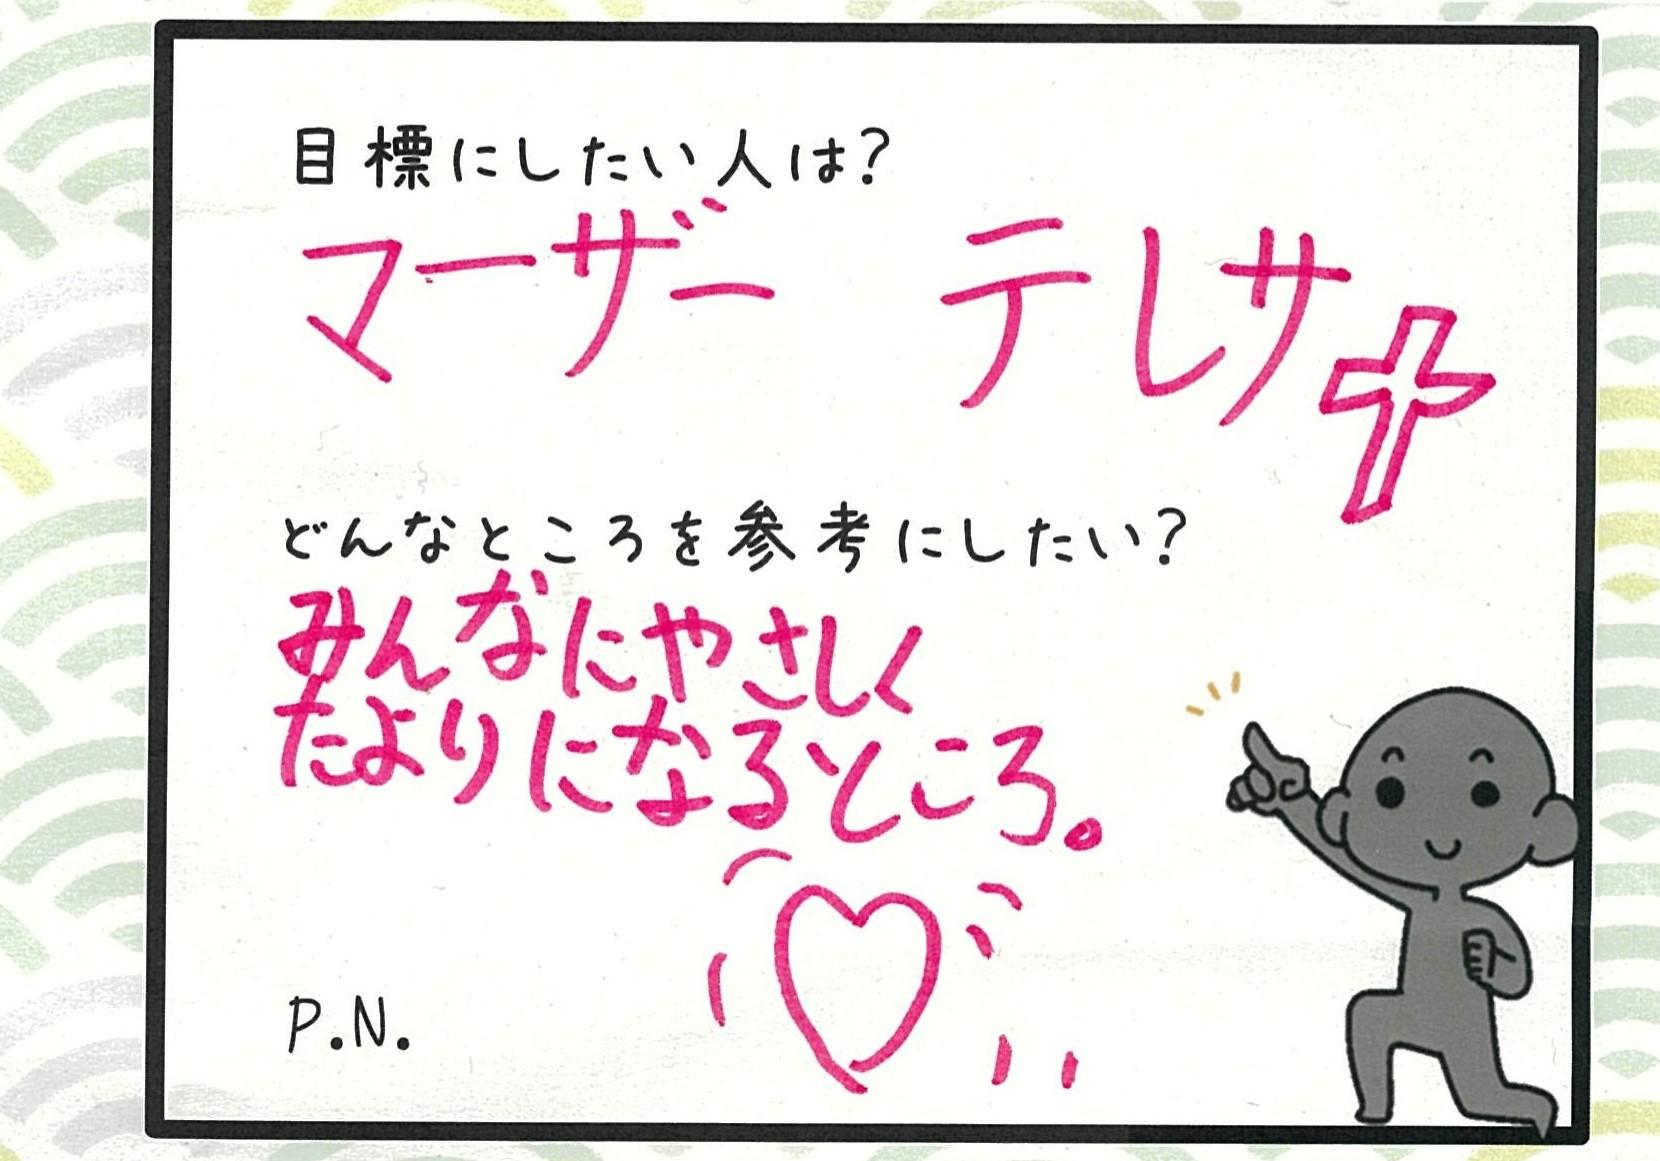 目標にしたい人は？
マーザー　テレサ
どんなところを参考にしたい？
みんなにやさしく
たよりになるところ。
P.N.